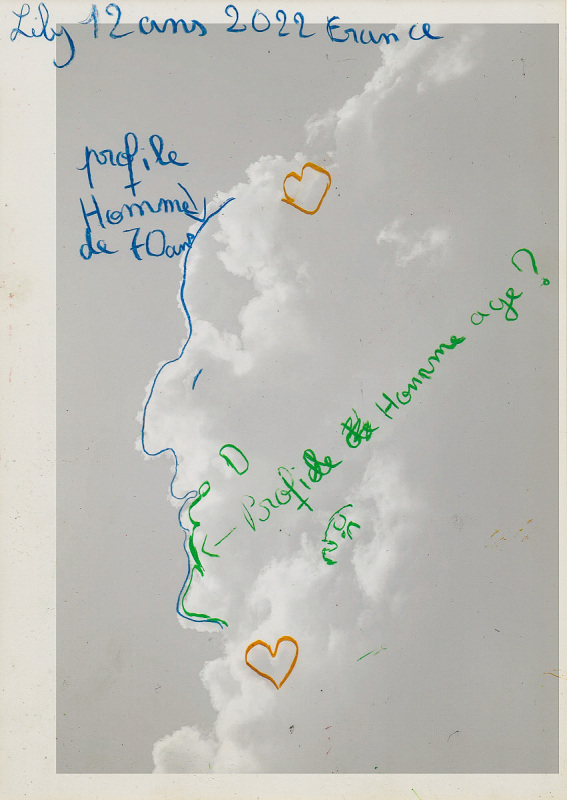 Lily 12 ans 2022 France
profile
Homme
de 70 ans
Profile de Homme age ?